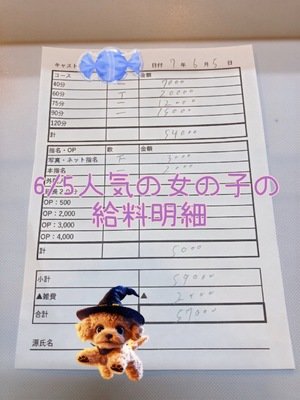 キャスト 日付 7年 6月 5日
コース 金額
40分 一 7000
60分 T 20000
75分 一 12000
90分 一 15000
120分
計 54000
指名・OP 数 金額
写真・ネット指名 下 3000
本指名 一 2000
6/5人気の女の子の
給料明細
OP:500
OP:2,000
OP:3,000
OP:4,000
計 5000
小計 59000
▲雑費 ▲ 2000
合計 57000
源氏名